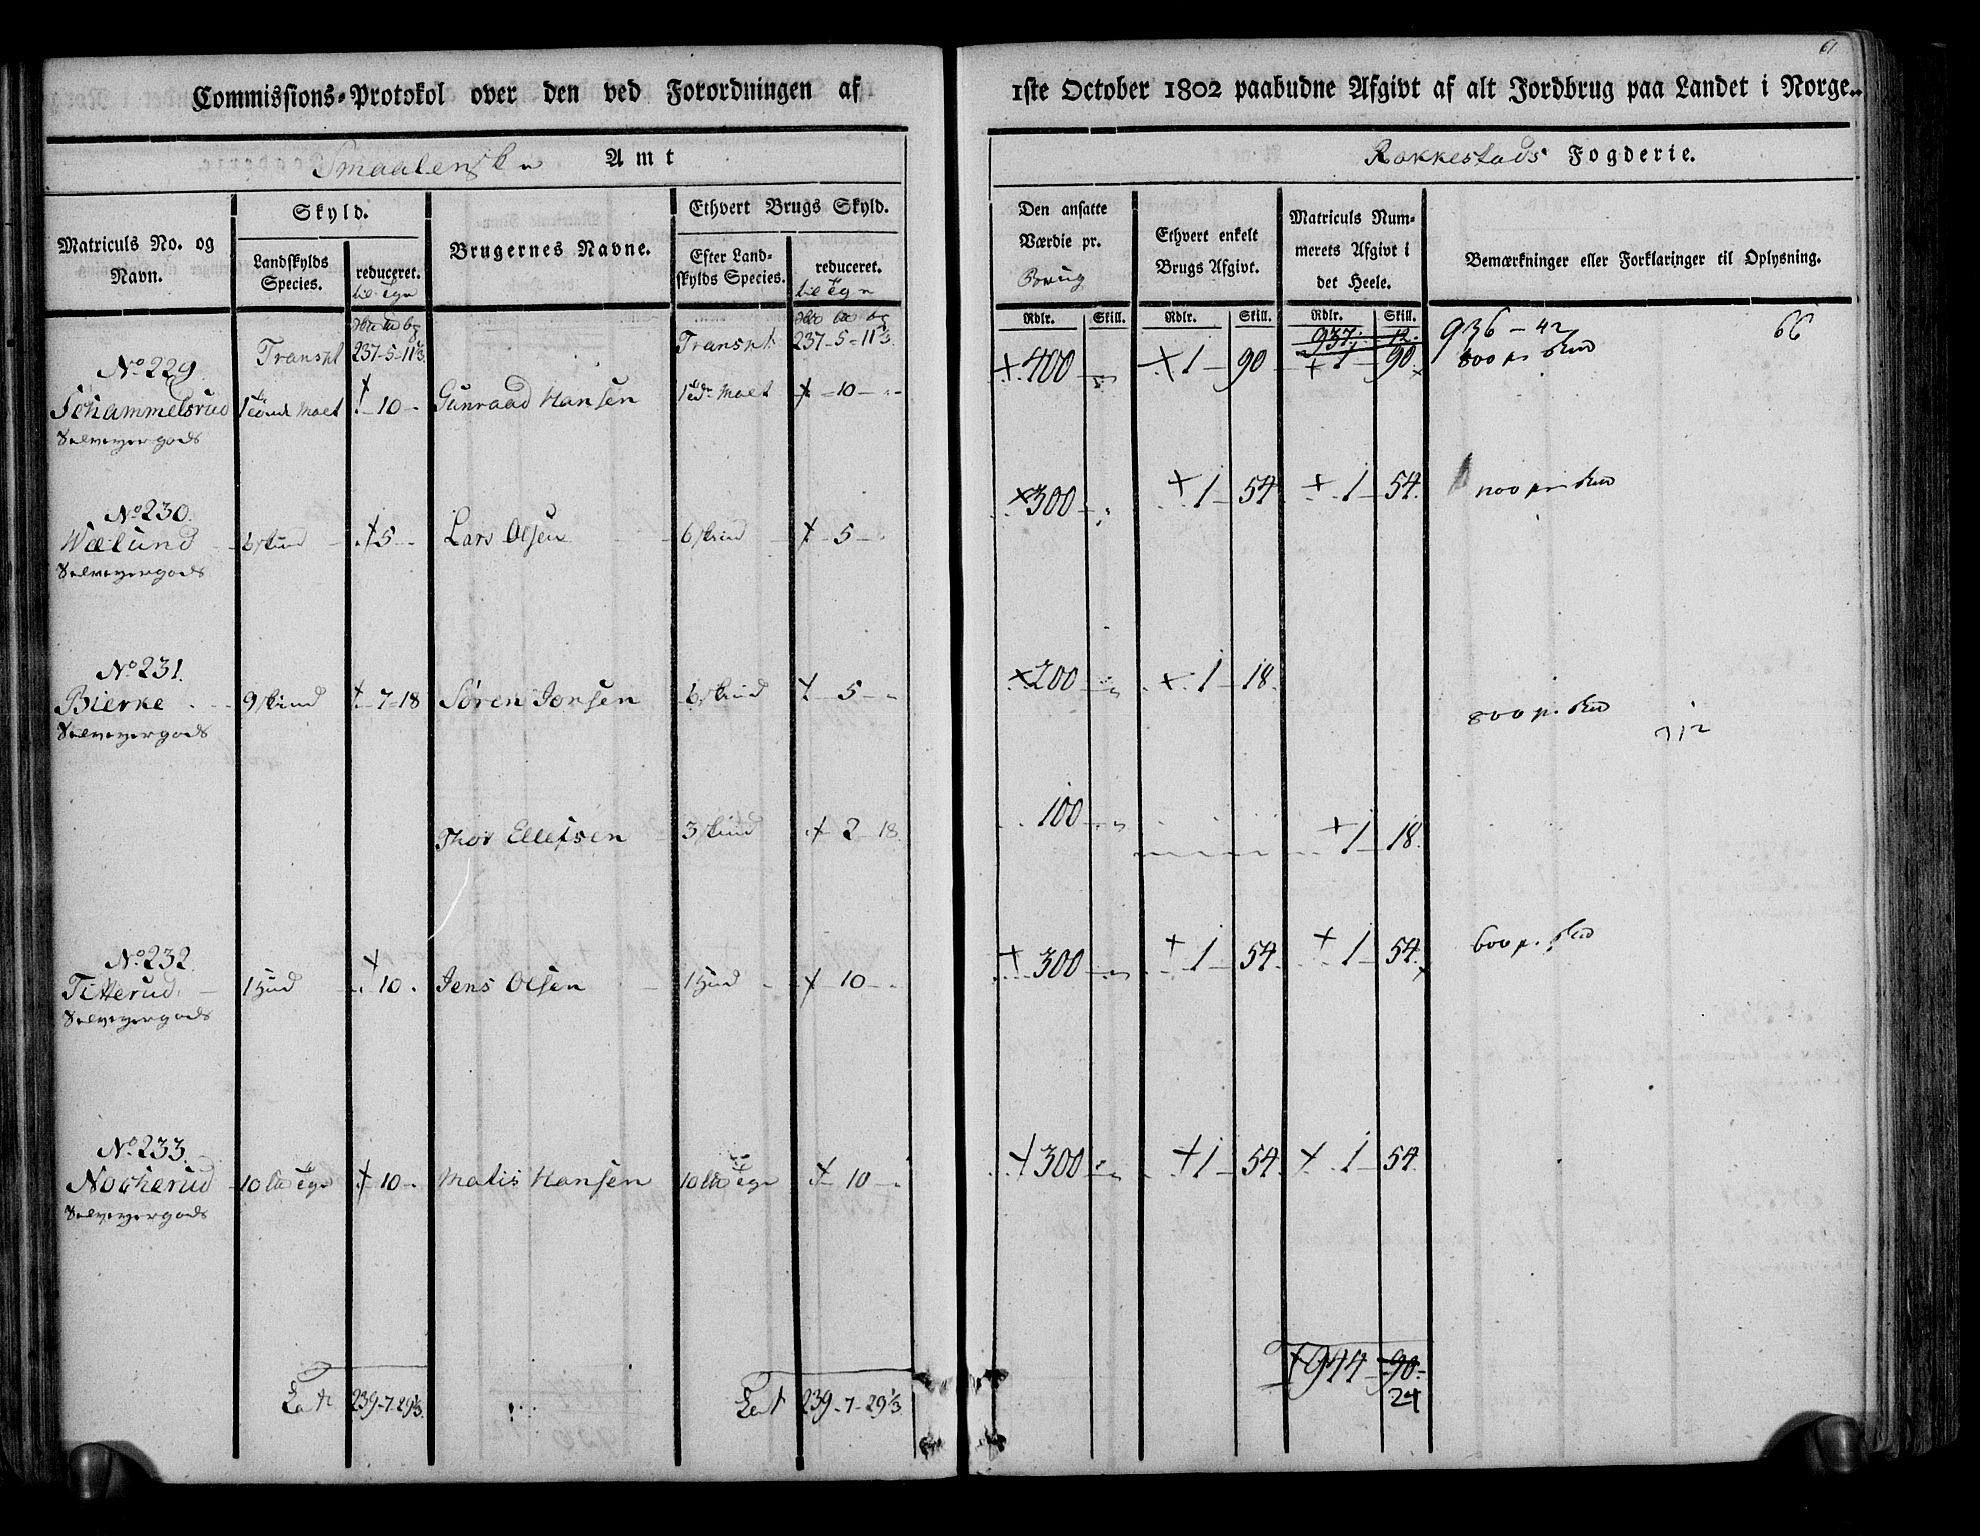 61
Commissions-Protokol over den ved Forordningen af
1ste October 1802 paabudne Afgivt af alt Jordbrug paa Landet i Norge.
Smaalenske Amt
Rakkestads Fogderie.
Matriculs No. og Navn.
Skyld.
Landskylds Species.
reduceret.
Brugernes Navne.
Ethvert Brugs Skyld.
Efter Landskylds Species.
reduceret.
Den ansatte Værdie pr. Brug
Ethvert enkelt Brugs Afgivt.
Matriculs Nummerets Afgivt i det Heele.
Bemærkninger eller Forklaringer til Oplysning.
Rdlr. Skill. Rdlr. Skill. Rdlr. Skill.
Transpt 237-5-11⅓ Transpt 237-5-11⅓ 937. 12. 936-42 66
No 229.
Schammelsrud 10 Gunraad Hansen 10 400 1 90 1 90 800
Selveyergods
No 230.
Wælund 6 skind 5 Lars Olsen 6 skind 5 300 1 54 1 54
Selveyergods
No 231.
Bierke 9 skind 7-18 Søren Jonsen 6 skind 5 200 1 18 800
Selveyergods
Thor Ellefsen 3 skind 2 18 100 1 18
No 232.
Titterud 1 Hud 10 Jens Olsen 1 Hud 10 300 1 54 1 54 600
Selveyergods
No 233.
Nocherud 10 10 Matis Hansen 10 10 300 1 54 1 54
Selveyergods
239-7-29⅓ 239-7-29⅓ 944 90
24